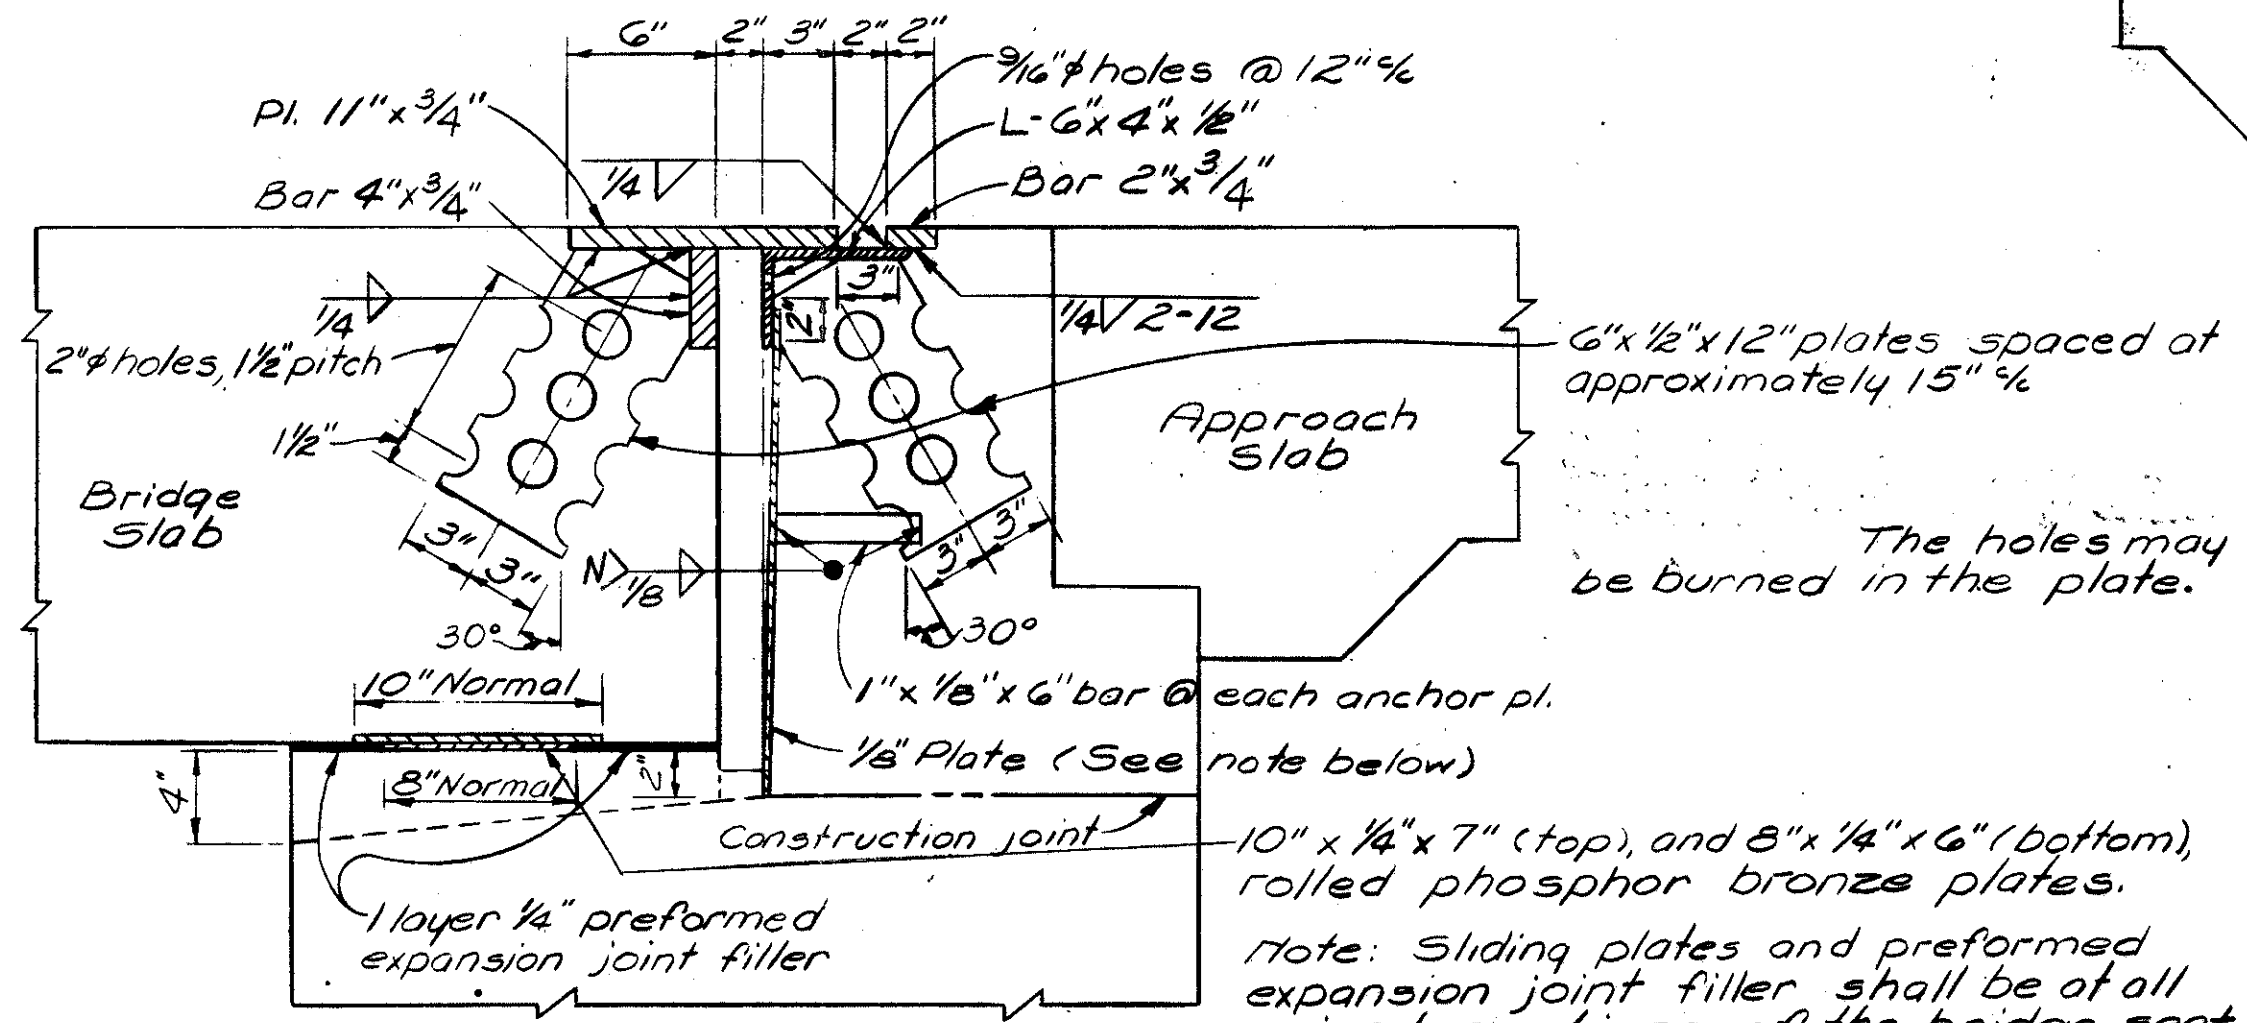 6" 2" 3" 2" 2"
9/16"ϕ holes @ 12" c/c
Pl. 11" x 3/4"
L-6"x 4"x 1/2"
1/4
Bar 2"x 3/4"
Bar 4"x 3/4"
3"
2"
1/4
1/4 2-12
2"ϕ holes, 1 1/2" pitch
6"x 1/2"x 12" plates spaced at
approximately 15" c/c
1 1/2"
Approach
Slab
Bridge
Slab
The holes may
be burned in the plate.
3"
3"
3"
3"
N
1/8
30°
30°
10" Normal
1"x 1/8"x 6" bar @ each anchor pl.
1/8" Plate (See note below)
4"
8" Normal
2"
Construction joint
10" x 1/4"x 7" (top), and 8"x 1/4"x 6" (bottom),
rolled phosphor bronze plates.
1 layer 1/4" preformed
expansion joint filler
Note: Sliding plates and preformed
expansion joint filler shall be at all
of the bridge seat